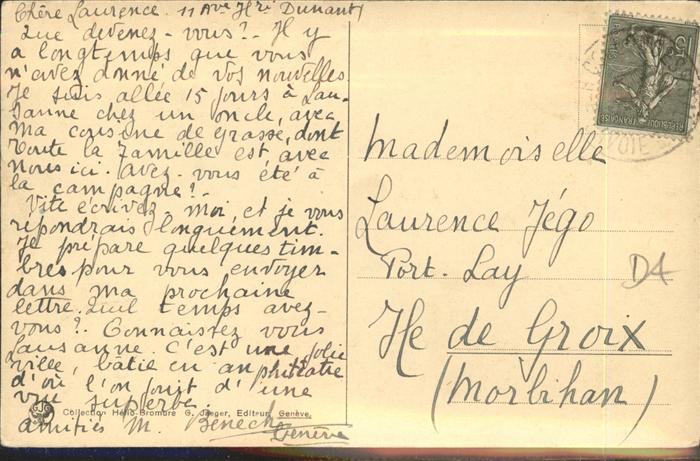 Chère Laurence. 11 Ave Hri Dunant
Que devenez-vous?- Il y
a longtemps que vous
n'avez donné de vos nouvelles.
Je suis allée 15 jours à Lau-
sanne chez un oncle, avec
ma cousine de Grasse, dont
toute la famille est avec
nous ici. Avez-vous été à
la campagne?-
Vite écrivez-moi, et je vous
répondrais longuement.
Je prépare quelques tim-
bres pour vous envoyer
dans ma prochaine
lettre. Quil temps avez-
vous?- Connaissez vous
Lausanne. C'est une jolie
ville, bâtie en amphitéatre
d'où l'on jouit d'une
vue superbe.
Collection Hélio-Bromure G. Jaeger, Editeur, Genève.
amitiés M. Benech
Genève
15
REPUBLIQUE FRANÇAISE
Mademoiselle
Laurence Jégo
Port-Lay
D4
Ile de Groix
(Morbihan)